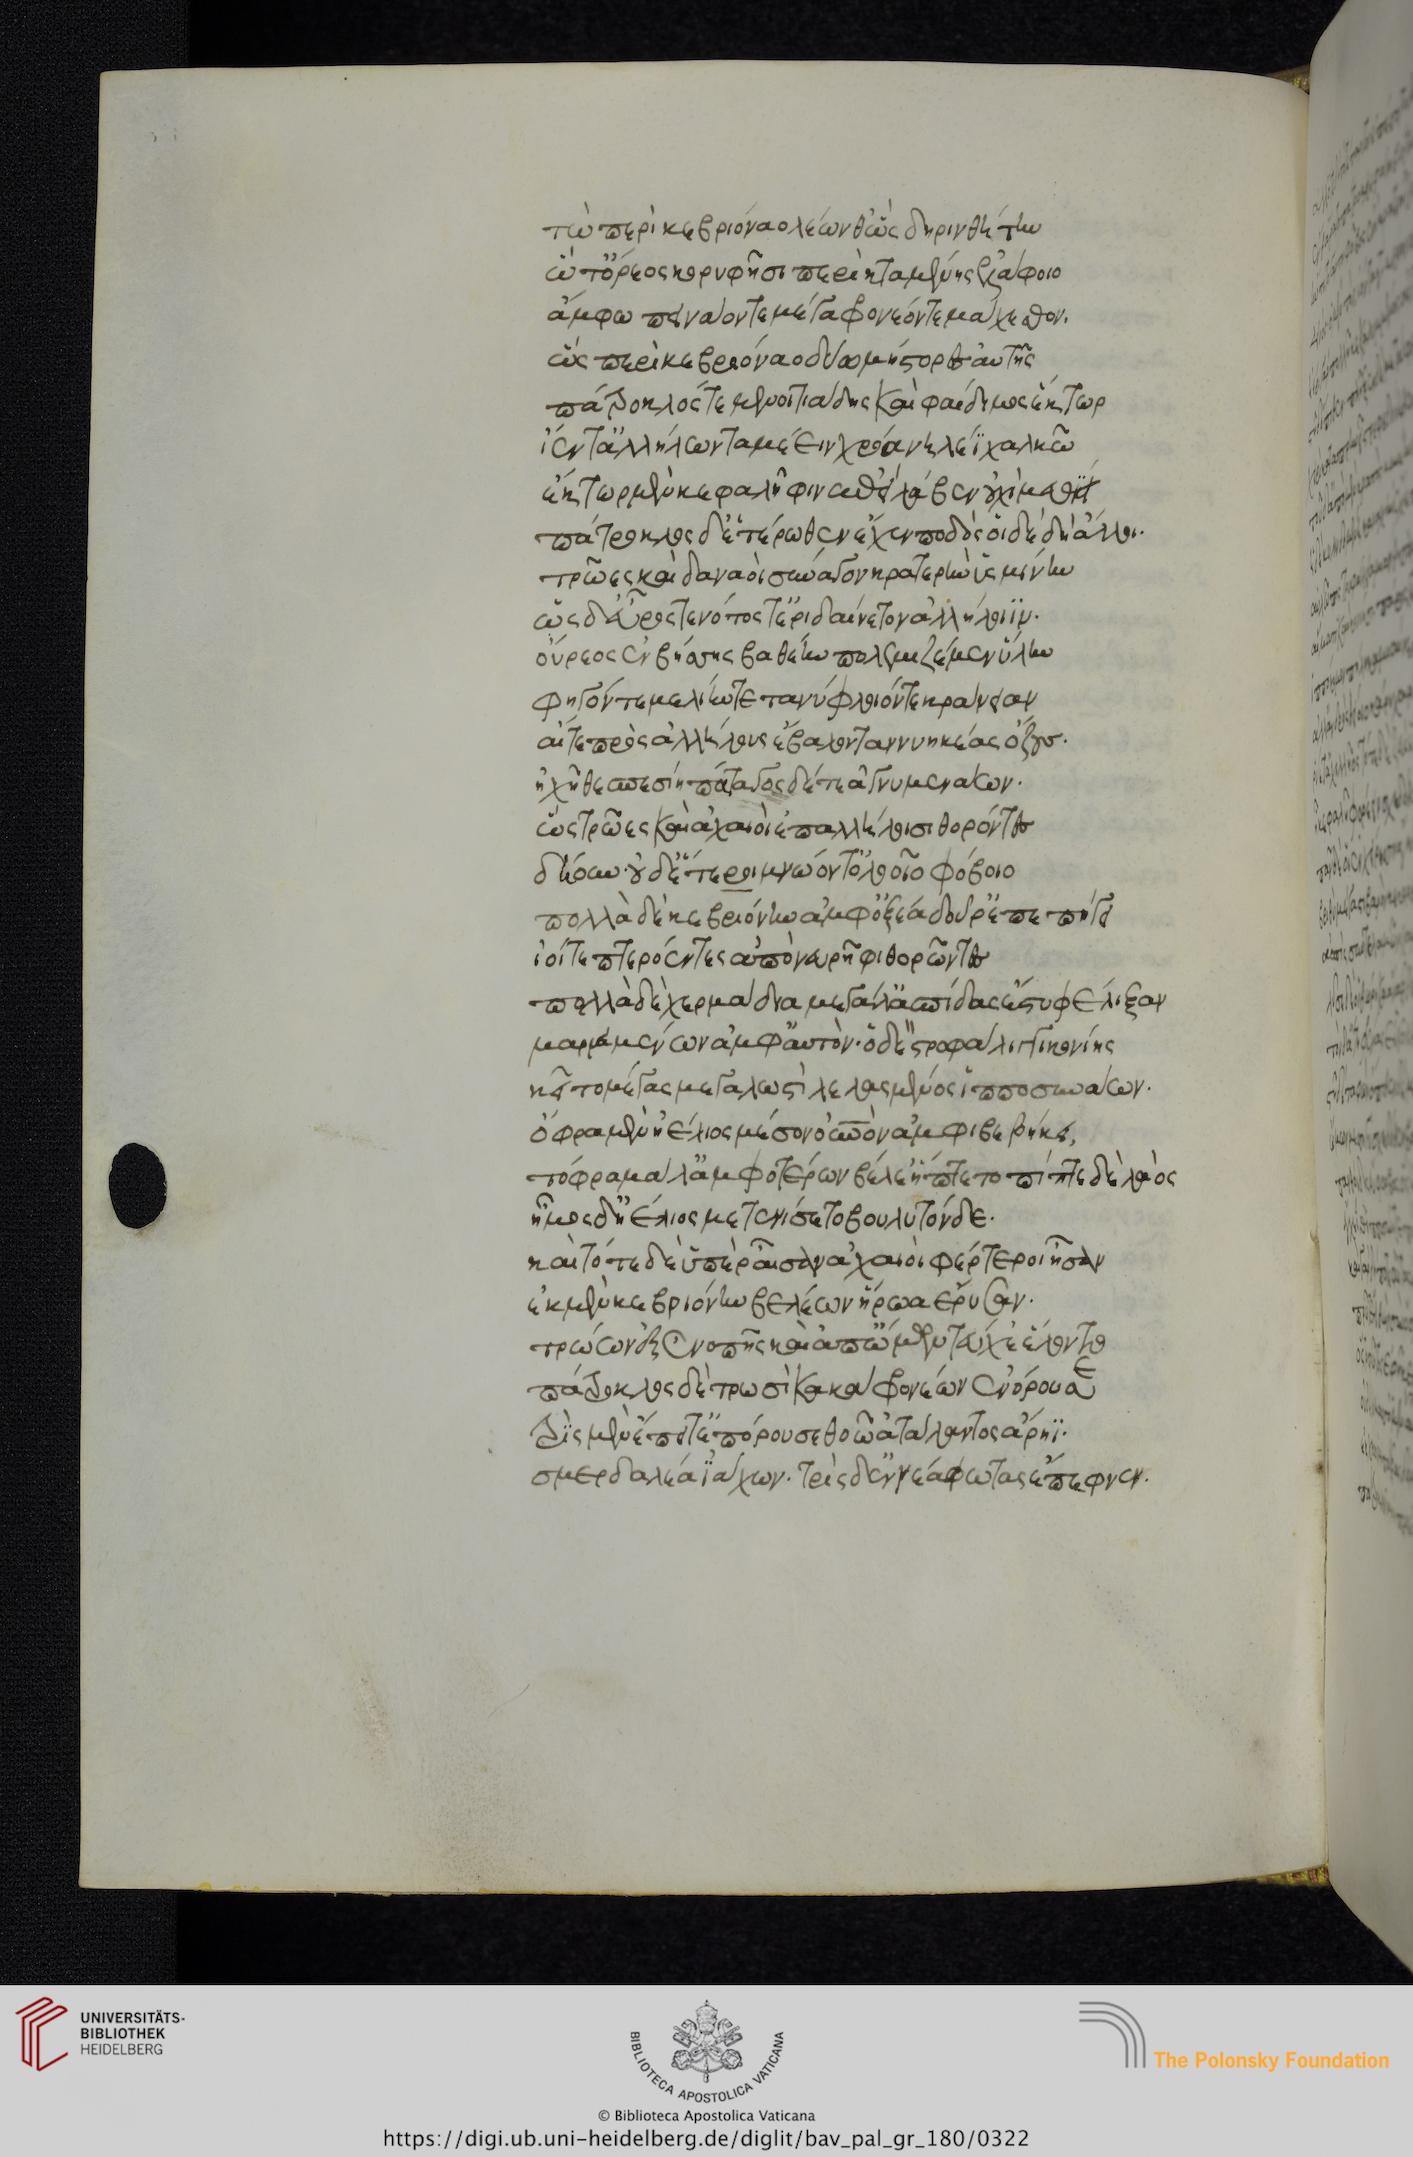 τὼ περὶ κεβριόναο λέωνθ' ὣς δηρινθήτην
ὥτ' ὄρεος κορυφῆσι περὶ κταμένης ἐλάφοιο
ἄμφω πεινάοντε μέγα φρονέοντε μάχεσθον.
ὣς περὶ κεβριόναο δύω μήστορες ἀυτῆς
πάτροκλός τε μενοιτιάδης καὶ φαίδιμος ἕκτωρ
ἵεντ' ἀλλήλων ταμέειν χρόα νηλέϊ χαλκῶ
ἕκτωρ μὲν κεφαλῆφιν ἐπεὶ λάβεν οὐχὶ μεθίει
πάτροκλος δ' ἑτέρωθεν ἔχεν ποδός· οἱ δὲ δὴ ἄλλοι.
τρῶες καὶ δαναοὶ σύναγον κρατερὴν ὑσμίνην
ὡς δ' εὖρός τε νότος τ' ἐριδαίνετον ἀλλήλοιϊν.
οὔρεος ἐν βήσσης βαθέην πολεμιζέμεν ὕλην
φηγόν τε μελίην τε τανύφλοιόν τε κράνειαν
αἵ τε πρὸς ἀλλήλους ἔβαλον τανυηκέας ὄζους.
ἠχῆ θεσπεσίη πάταγος δέ τε ἀγνυμενάων.
ὣς τρῶες καὶ ἀχαιοὶ ἐπ' ἀλλήλοισι θορόντες
δήουν· οὐδ' ἕτεροι μνώοντ' ὀλοοῖο φόβοιο
πολλὰ δὲ κεβριόνην ἀμφ' ὀξέα δοῦρ' ἐπεπήγει
ἰοί τε πτερόεντες ἀπὸ νευρῆφι θορῶντες
πολλὰ δὲ χερμάδια μεγάλ' ἀσπίδας ἐστυφέλιξαν
μαρναμένων ἀμφ' αὐτόν· ὁ δ' ἐν στροφάλιγγι κονίης
κεῖτο μέγας μεγαλωστὶ λελασμένος ἱπποσυνάων.
ὄφρα μὲν ἠέλιος μέσον οὐρανὸν ἀμφιβεβήκει,
τόφρα μάλ' ἀμφοτέρων βέλε' ἥπτετο πίπτε δὲ λαός
ἦμος δ' ἠέλιος μετενίσετο βουλυτόνδε.
καὶ τότε δὲ ὑπὲρ αἶσαν ἀχαιοὶ φέρτεροι ἦσαν
ἐκ μὲν κεβριόνην βελέων ἥρωα ἔρυσαν.
τρώων ἐξ ἐνοπῆς καὶ ἀπ' ὤμων τεύχε' ἕλοντο
πάτροκλος δὲ τρωσὶ κακὰ φρονέων ἐνόρουσε
τρὶς μὲν ἔπειτ' ἐπόρουσε θοῶ ἀτάλαντος ἄρηϊ.
σμερδαλέα ἰάχων. τρὶς δ' ἐννέα φῶτας ἔπεφνεν.
UNIVERSITÄTS-
BIBLIOTHEK
HEIDELBERG
BIBLIOTECA APOSTOLICA VATICANA
The Polonsky Foundation
© Biblioteca Apostolica Vaticana
https://digi.ub.uni-heidelberg.de/diglit/bav_pal_gr_180/0322